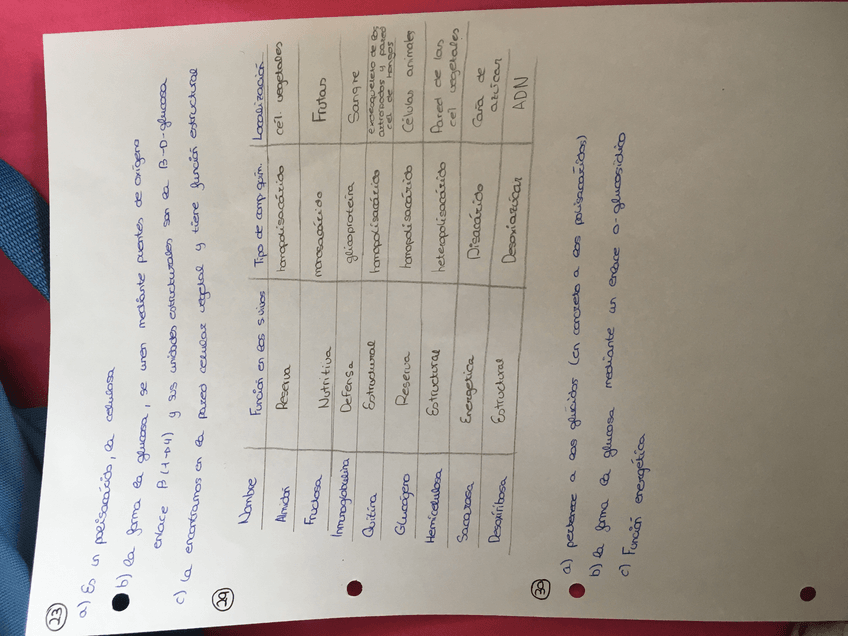 23
a) Es un polisacárido, la celulosa
b) la forma la glucosa, se unen mediante puentes de oxígeno
enlace B (1→4) y sus unidades estructurales son la B-D-glucosa
c) la encontramos en la pared celular vegetal y tiene función estructural
29
Nombre Función en los s.vivos Tipo de comp. quím. Localización
Almidón Reserva homopolisacárido cel. vegetales
Fructosa Nutritiva monosacárido Frutas
Inmunoglobulina Defensa glicoproteina Sangre
Quitina Estructural homopolisacárido exoesqueleto de los artropodos y pared cel de hongos
Glucógeno Reserva homopolisacárido Células animales
Hemicelulosa Estructural heteropolisacárido Pared de las cel vegetales
Sacarosa Energética Disacárido Caña de azúcar
Desoxirribosa Estructural Desoxiazúcar ADN
30
a) pertenece a los glúcidos (en concreto a los polisacáridos)
b) la forma la glucosa mediante un enlace o-glucosídico
c) Función energética